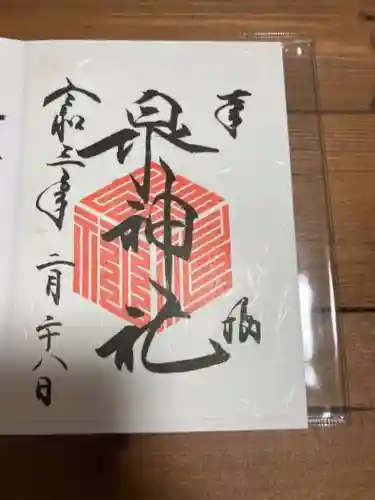 奉拝
泉神社
令和三年二月二十八日